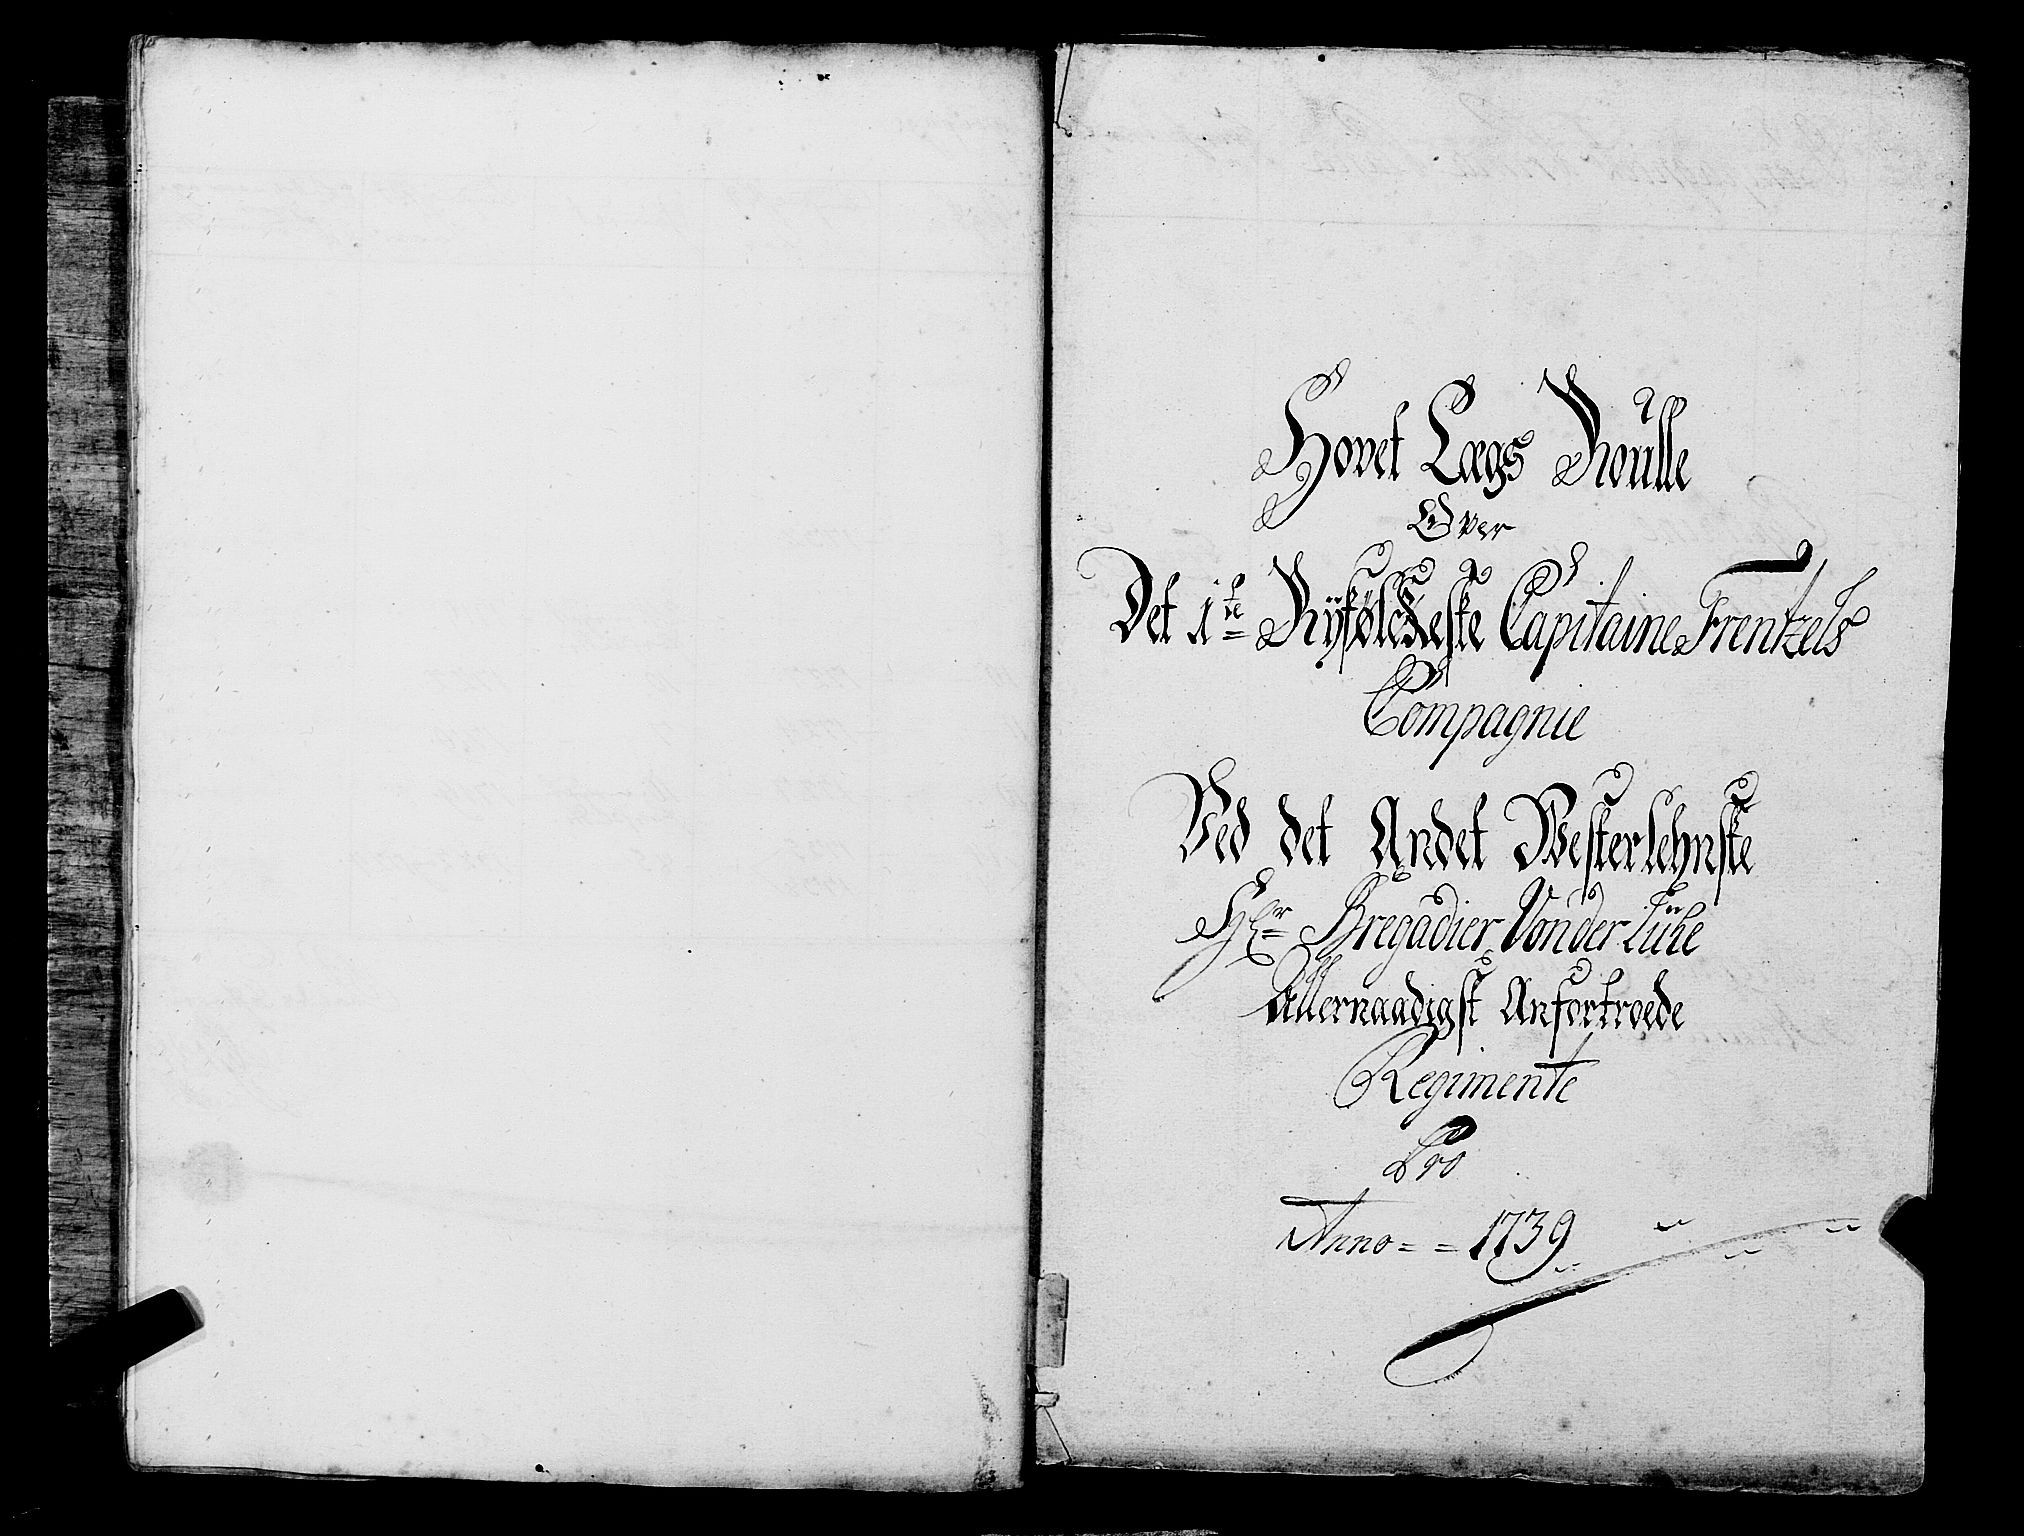 Hovet Lægs Roulle
Over
Det 1te Ryfølckeske Capitaine Frentzels
Compagnie
Ved det Andet Westerlehnske
Hr Bregadier Von der Lühe
Allernaadigst Anfortroede
Regimente
Pro
Anno = = 1739